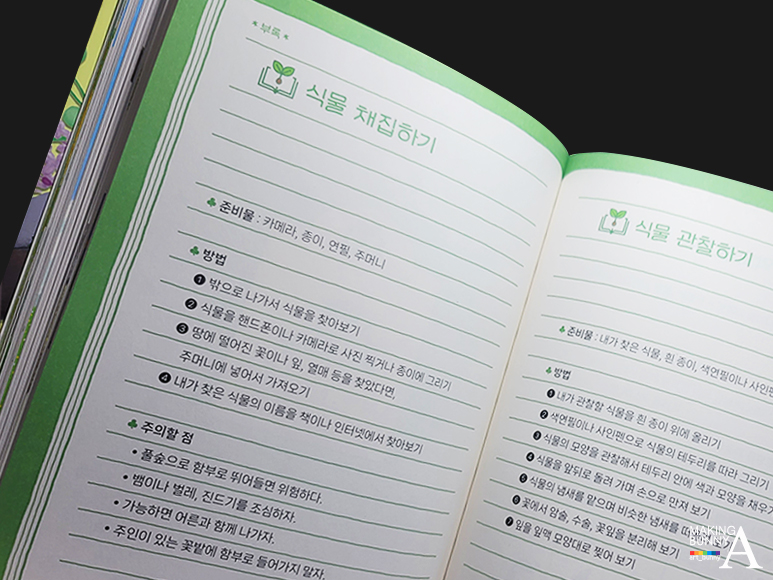 부록
식물 채집하기
준비물 : 카메라, 종이, 연필, 주머니
방법
❶ 밖으로 나가서 식물을 찾아보기
❷ 식물을 핸드폰이나 카메라로 사진 찍거나 종이에 그리기
❸ 땅에 떨어진 꽃이나 잎, 열매 등을 찾았다면,
주머니에 넣어서 가져오기
❹ 내가 찾은 식물의 이름을 책이나 인터넷에서 찾아보기
주의할 점
• 풀숲으로 함부로 뛰어들면 위험하다.
• 뱀이나 벌레, 진드기를 조심하자.
• 가능하면 어른과 함께 나가자.
• 주인이 있는 꽃밭에 함부로 들어가지 말자.
식물 관찰하기
준비물 : 내가 찾은 식물, 흰 종이, 색연필이나 사인펜
방법
❶ 내가 관찰할 식물을 흰 종이 위에 올리기
❷ 색연필이나 사인펜으로 식물의 테두리를 따라 그리기
❸ 식물의 모양을 관찰해서 테두리 안에 색과 모양을 채우기
❹ 식물을 앞뒤로 돌려 가며 손으로 만져 보기
❺ 식물의 냄새를 맡으며 비슷한 냄새를
❻ 꽃에서 암술, 수술, 꽃잎을 분리해 보기
❼ 잎을 잎맥 모양대로 찢어 보기
MAKING
BUNNY
A